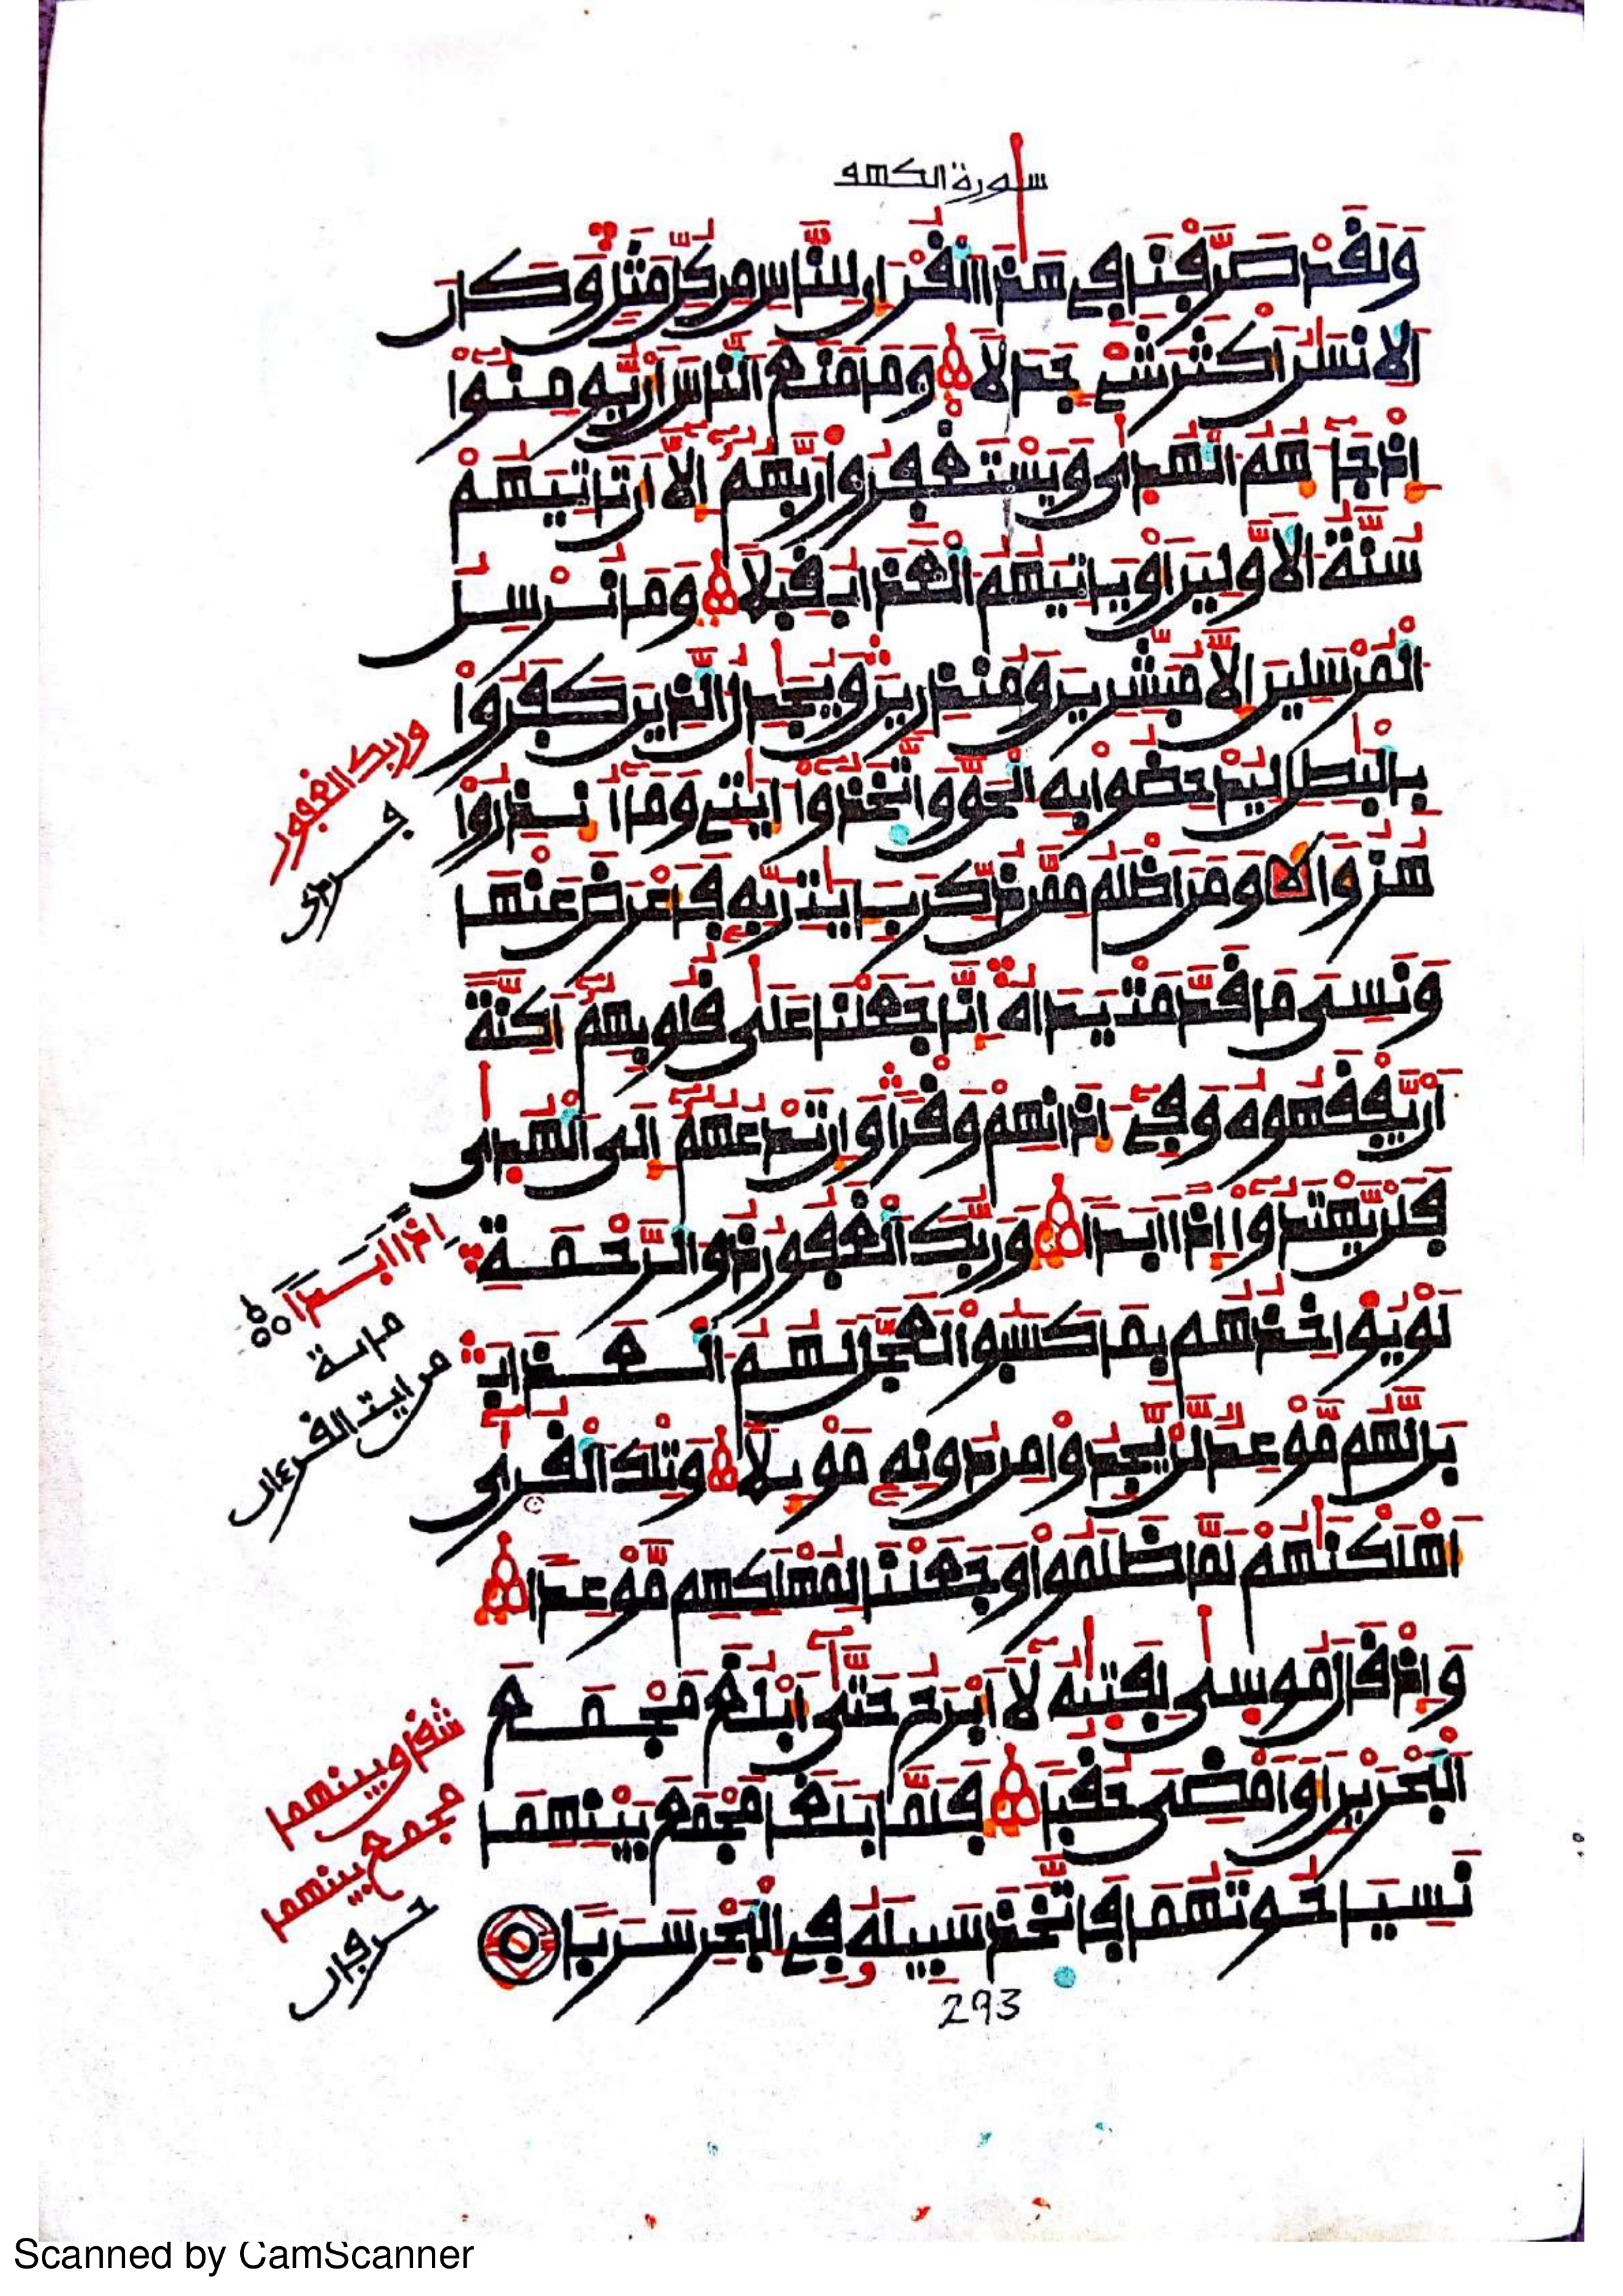 سورة الكهف
وَلَقَدْ صَرَّفْنَا فِي هَٰذَا الْقُرْءَانِ لِلنَّاسِ مِن كُلِّ مَثَلٍ وَكَانَ
الْإِنسَٰنُ أَكْثَرَ شَيْءٍ جَدَلًا وَمَا مَنَعَ النَّاسَ أَنْ يُّومِنُوا
إِذْ جَآءَهُمُ الْهُدَىٰ وَيَسْتَغْفِرُوا رَبَّهُمُ إِلَّآ أَن تَاتِيَهُمْ
سُنَّةُ الْأَوَّلِينَ أَوْ يَاتِيَهُمُ الْعَذَابُ قِبَلًا وَمَا نُرْسِلُ
الْمُرْسَلِينَ إِلَّا مُبَشِّرِينَ وَمُنذِرِينَ وَيُجَٰدِلُ الَّذِينَ كَفَرُوا
بِالْبَٰطِلِ لِيُدْحِضُوا بِهِ الْحَقَّ وَاتَّخَذُوا ءَايَٰتِي وَمَآ أُنذِرُوا
هُزُؤًا وَمَنَ اَظْلَمُ مِمَّن ذُكِّرَ بِـَٔايَٰتِ رَبِّهِ فَأَعْرَضَ عَنْهَا
وَنَسِيَ مَا قَدَّمَتْ يَدَاهُ إِنَّا جَعَلْنَا عَلَىٰ قُلُوبِهِمُ أَكِنَّةً
أَنْ يَّفْقَهُوهُ وَفِي ءَاذَانِهِمْ وَقْرًا وَإِن تَدْعُهُمُ إِلَى الْهُدَىٰ
فَلَنْ يَّهْتَدُوا إِذًا أَبَدًا وَرَبُّكَ الْغَفُورُ ذُو الرَّحْمَةِ
لَوْ يُؤَاخِذُهُم بِمَا كَسَبُوا لَعَجَّلَ لَهُمُ الْعَذَابَ
بَل لَّهُم مَّوْعِدٌ لَّنْ يَّجِدُوا مِن دُونِهِ مَوْئِلًا وَتِلْكَ الْقُرَىٰ
أَهْلَكْنَٰهُمْ لَمَّا ظَلَمُوا وَجَعَلْنَا لِمُهْلَكِهِم مَّوْعِدًا
وَإِذْ قَالَ مُوسَىٰ لِفَتَىٰهُ لَآ أَبْرَحُ حَتَّىٰ أَبْلُغَ مَجْمَعَ
الْبَحْرَيْنِ أَوْ أَمْضِيَ حُقُبًا فَلَمَّا بَلَغَا مَجْمَعَ بَيْنِهِمَا
نَسِيَا حُوتَهُمَا فَاتَّخَذَ سَبِيلَهُ فِي الْبَحْرِ سَرَبًا
293
وربك الغفور
إذا أبدا
من ايت القرءان
مجمع بينهما
Scanned by CamScanner